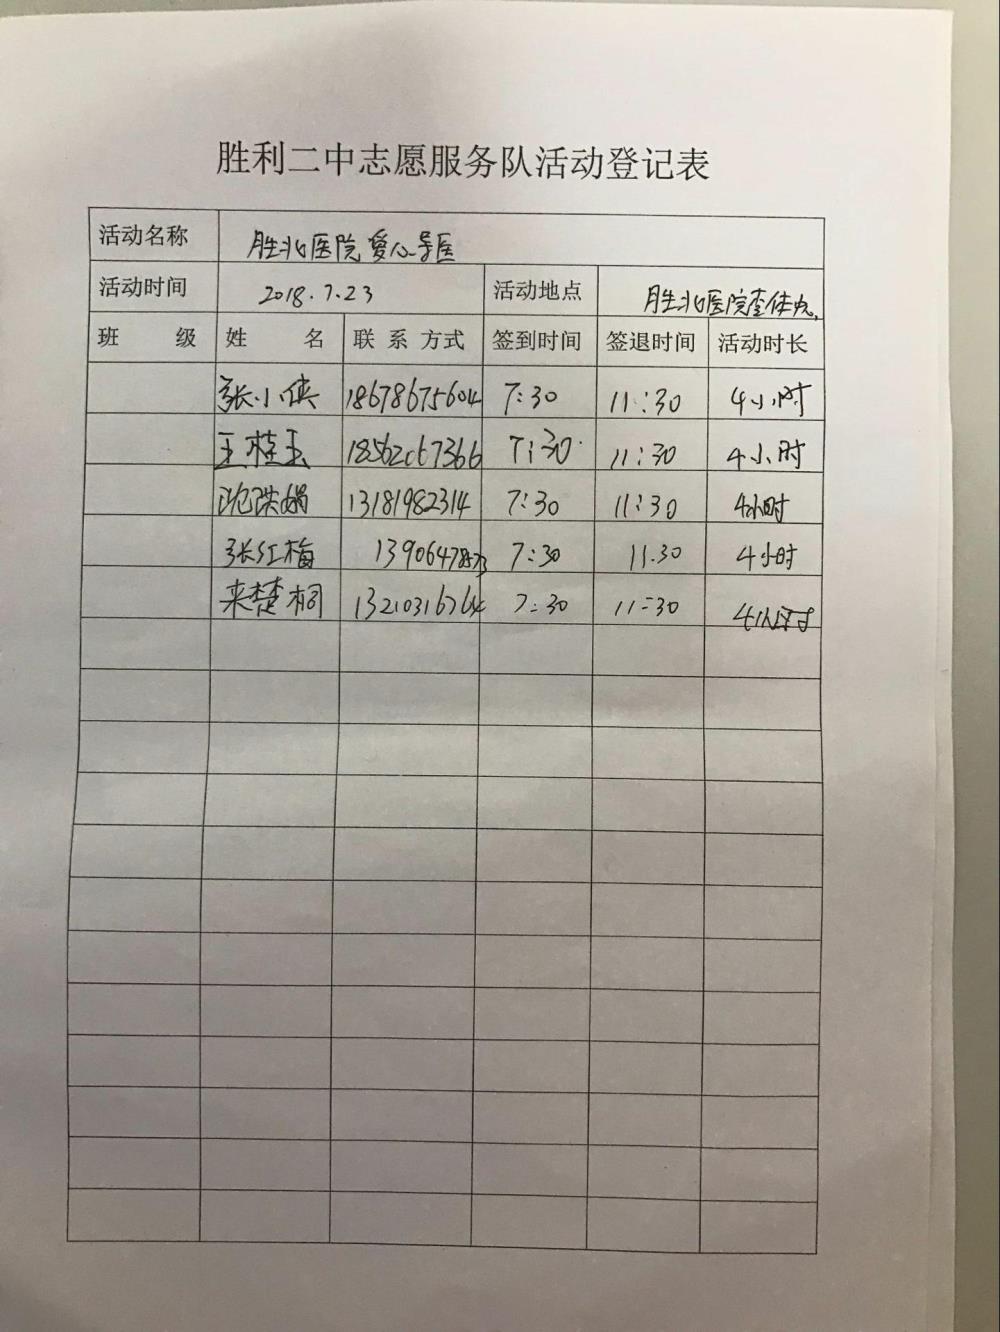 胜利二中志愿服务队活动登记表
活动名称 胜北医院爱心导医
活动时间 2018.7.23 活动地点 胜北医院查体中心
班 级 姓 名 联 系 方式 签到时间 签退时间 活动时长
张小侠 18678675604 7:30 11:30 4小时
王桂玉 7:30 11:30 4小时
13181982314 7:30 11:30 4小时
张红梅 7:30 11.30 4小时
来楚桐 13210316764 7:30 11:30 4小时